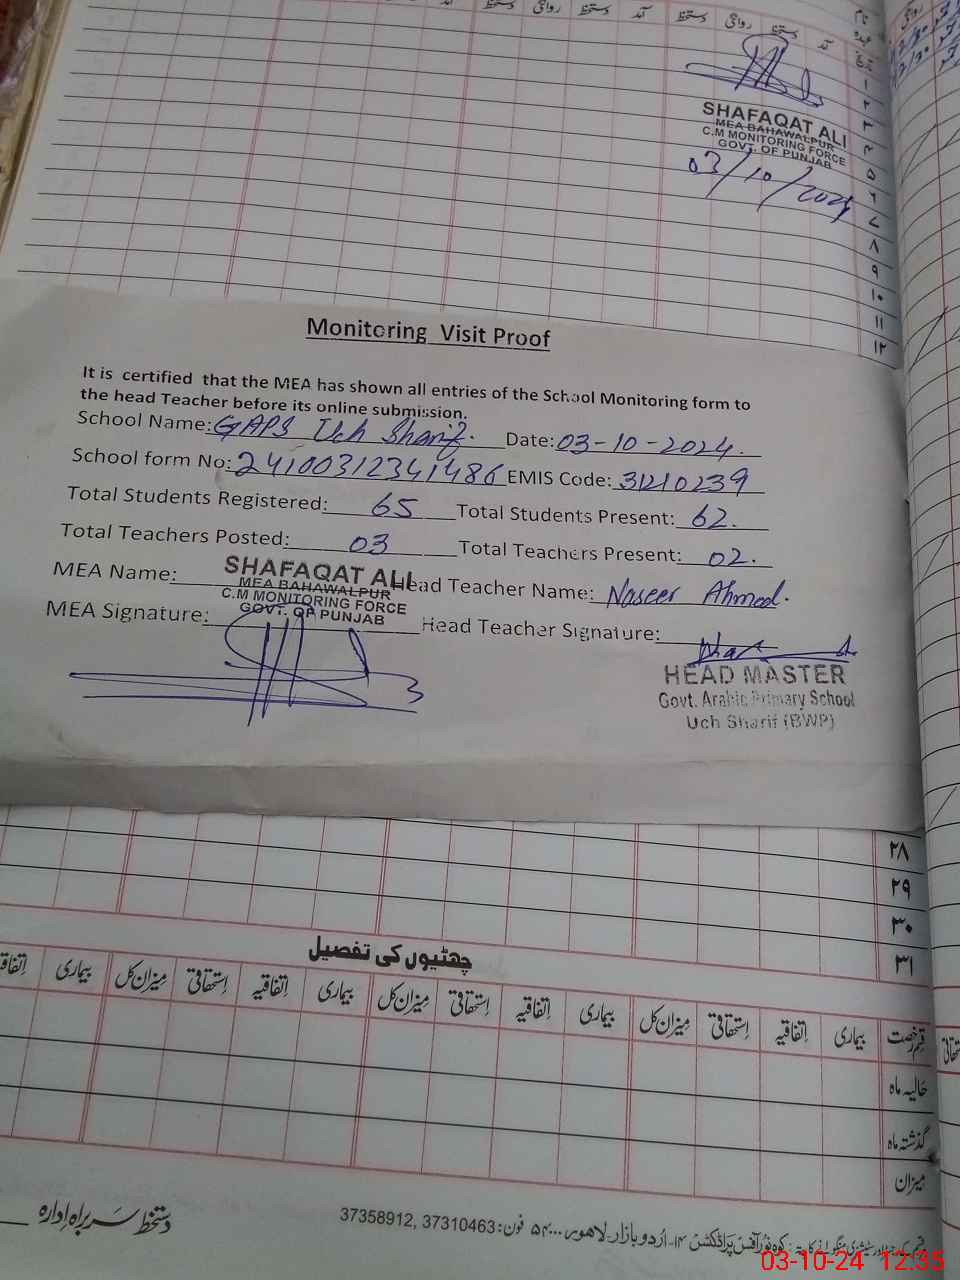 آمد دستخط روانگی دستخط آمد دستخط روانگی دستخط نام
آمد عہدہ
تاریخ
۱
۲
SHAFAQAT ALI
MEA BAHAWALPUR
C.M MONITORING FORCE
GOVT. OF PUNJAB
03/10/2024
۳
۴
۵
۶
۷
۸
۹
۱۰
۱۱
۱۲
Monitoring Visit Proof
It is certified that the MEA has shown all entries of the School Monitoring form to
the head Teacher before its online submission.
School Name: GAPS Uch Sharif. Date: 03-10-2024.
School form No: 24100312341486 EMIS Code: 31210239
Total Students Registered: 65 Total Students Present: 62.
Total Teachers Posted: 03 Total Teachers Present: 02.
MEA Name: SHAFAQAT ALI Head Teacher Name: Naseer Ahmed.
MEA BAHAWALPUR
C.M MONITORING FORCE
GOVT. OF PUNJAB
MEA Signature: Head Teacher Signature:
HEAD MASTER
Govt. Arabic Primary School
Uch Sharif (BWP)
۲۸
۲۹
۳۰
۳۱
چھٹیوں کی تفصیل
قسم رخصت بیماری اِتفاقیہ اِستحقاقی میزان کل بیماری اِتفاقیہ اِستحقاقی میزان کل بیماری اِتفاقیہ اِستحقاقی میزان کل بیماری
حالیہ ماہ
گذشتہ ماہ
میزان
دستخط سربراہ اِدارہ
۱۴-اُردو بازار-لاہور ۵۴۰۰۰ فون: 37310463 ,37358912
03-10-24 12:35